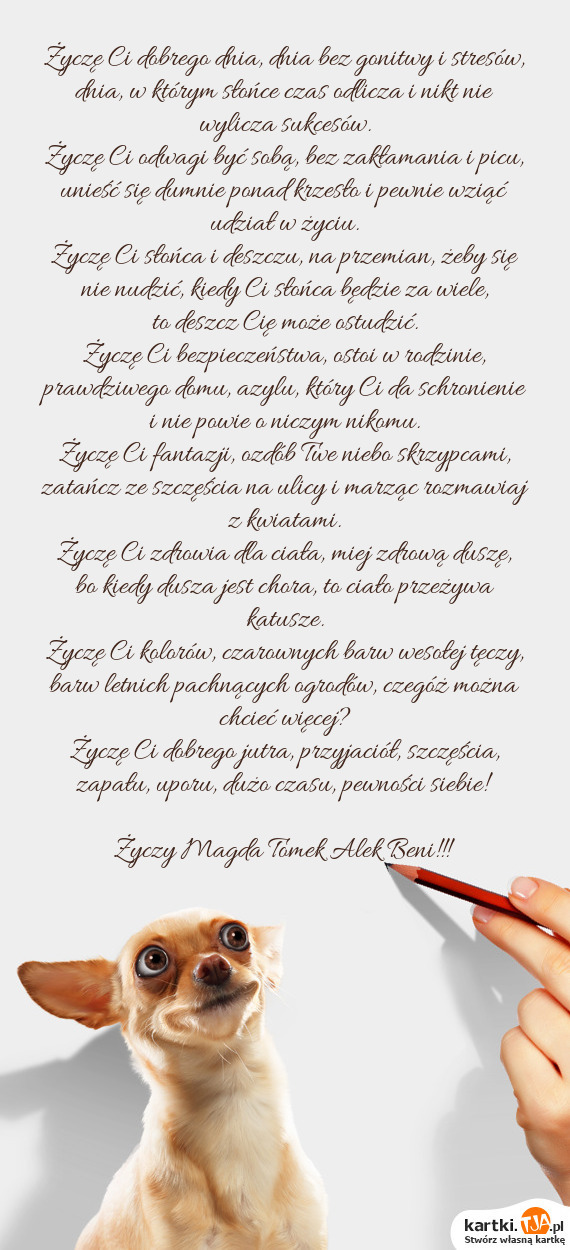 Życzę Ci dobrego dnia, dnia bez gonitwy i stresów,
dnia, w którym słońce czas odlicza i nikt nie
wylicza sukcesów.
Życzę Ci odwagi być sobą, bez zakłamania i picu,
unieść się dumnie ponad krzesło i pewnie wziąć
udział w życiu.
Życzę Ci słońca i deszczu, na przemian, żeby się
nie nudzić, kiedy Ci słońca będzie za wiele,
to deszcz Cię może ostudzić.
Życzę Ci bezpieczeństwa, ostoi w rodzinie,
prawdziwego domu, azylu, który Ci da schronienie
i nie powie o niczym nikomu.
Życzę Ci fantazji, ozdób Twe niebo skrzypcami,
zatańcz ze szczęścia na ulicy i marząc rozmawiaj
z kwiatami.
Życzę Ci zdrowia dla ciała, miej zdrową duszę,
bo kiedy dusza jest chora, to ciało przeżywa
katusze.
Życzę Ci kolorów, czarownych barw wesołej tęczy,
barw letnich pachnących ogrodów, czegóż można
chcieć więcej?
Życzę Ci dobrego jutra, przyjaciół, szczęścia,
zapału, uporu, dużo czasu, pewności siebie!
Życzy Magda Tomek Alek Beni!!!
kartki.TJA.pl
Stwórz własną kartkę